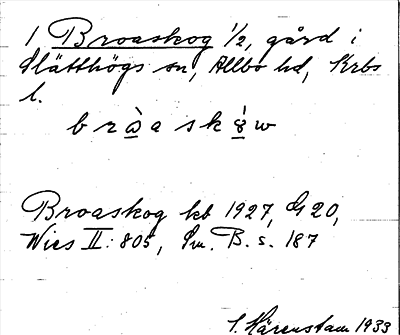 1 Broaskog 1/2, gård i
Slätthögs sn, Allbo hd, Krbs
l.
b r å̀ a s k ó̤ w
Broaskog kb 1927, G 20,
Wies II: 805, Sm. B. s. 187
S. Härenstam 1933